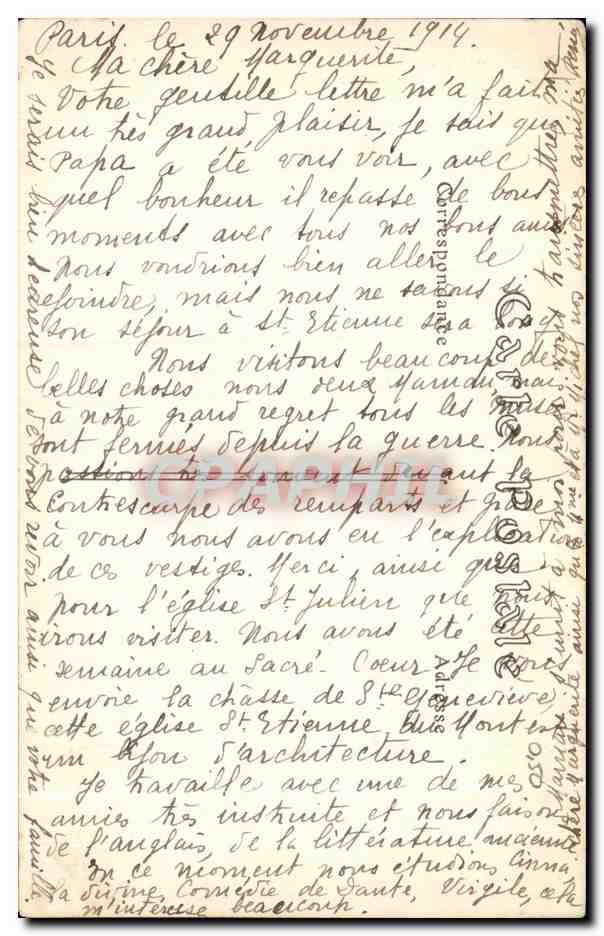 Paris le 29 Novembre 1914.
Ma chère Marguerite,
Votre gentille lettre m'a fait
un très grand plaisir, Je sais que
Papa a été vous voir, avec
quel bonheur il repasse de bons
moments avec tous nos bons amis.
Nous voudrions bien aller le
rejoindre, mais nous ne savons si
son séjour à St. Etienne sera long
Nous visitons beaucoup de
belles choses nous deux Maman, mais
à notre grand regret tous les musées
sont fermés depuis la guerre. Nous
passions devant la
Contrescarpe des remparts et grâce
à vous nous avons eu l'explication
de ces vestiges. Merci, ainsi que
pour l'église St Julien que nous
irons visiter. Nous avons été cette
semaine au Sacré-Coeur. Je vous
envoie la châsse de Ste Geneviève,
cette église St. Etienne du Mont est
un bijou d'architecture.
Je travaille avec une de mes
amies très instruite et nous faisons
de l'anglais, de la littérature ancienne
en ce moment nous étudions Cinna,
la divine Comédie de Dante, Virgile, cela
m'intéresse beaucoup.
Je serais bien heureuse de vous revoir ainsi que votre famille.
Maman s'unit à moi pour vous transmettre, ma
chère Marguerite ainsi qu'à nos sincères amitiés
Correspondance
Carte postale
Adresse
0.50
CPAPHIL